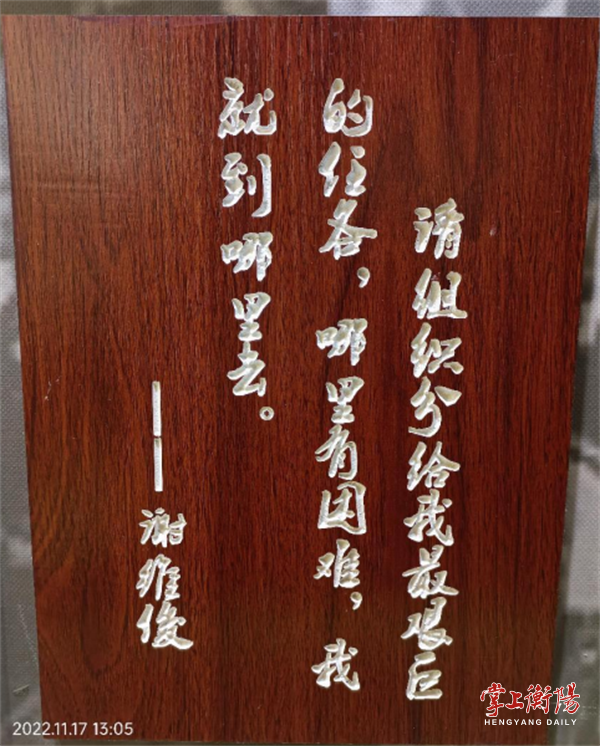 请组织分给我最艰巨
的任务，哪里有困难，我
就到哪里去。
——谢维俊
2022.11.17 13:05
掌上衡陽
HENGYANG DAILY